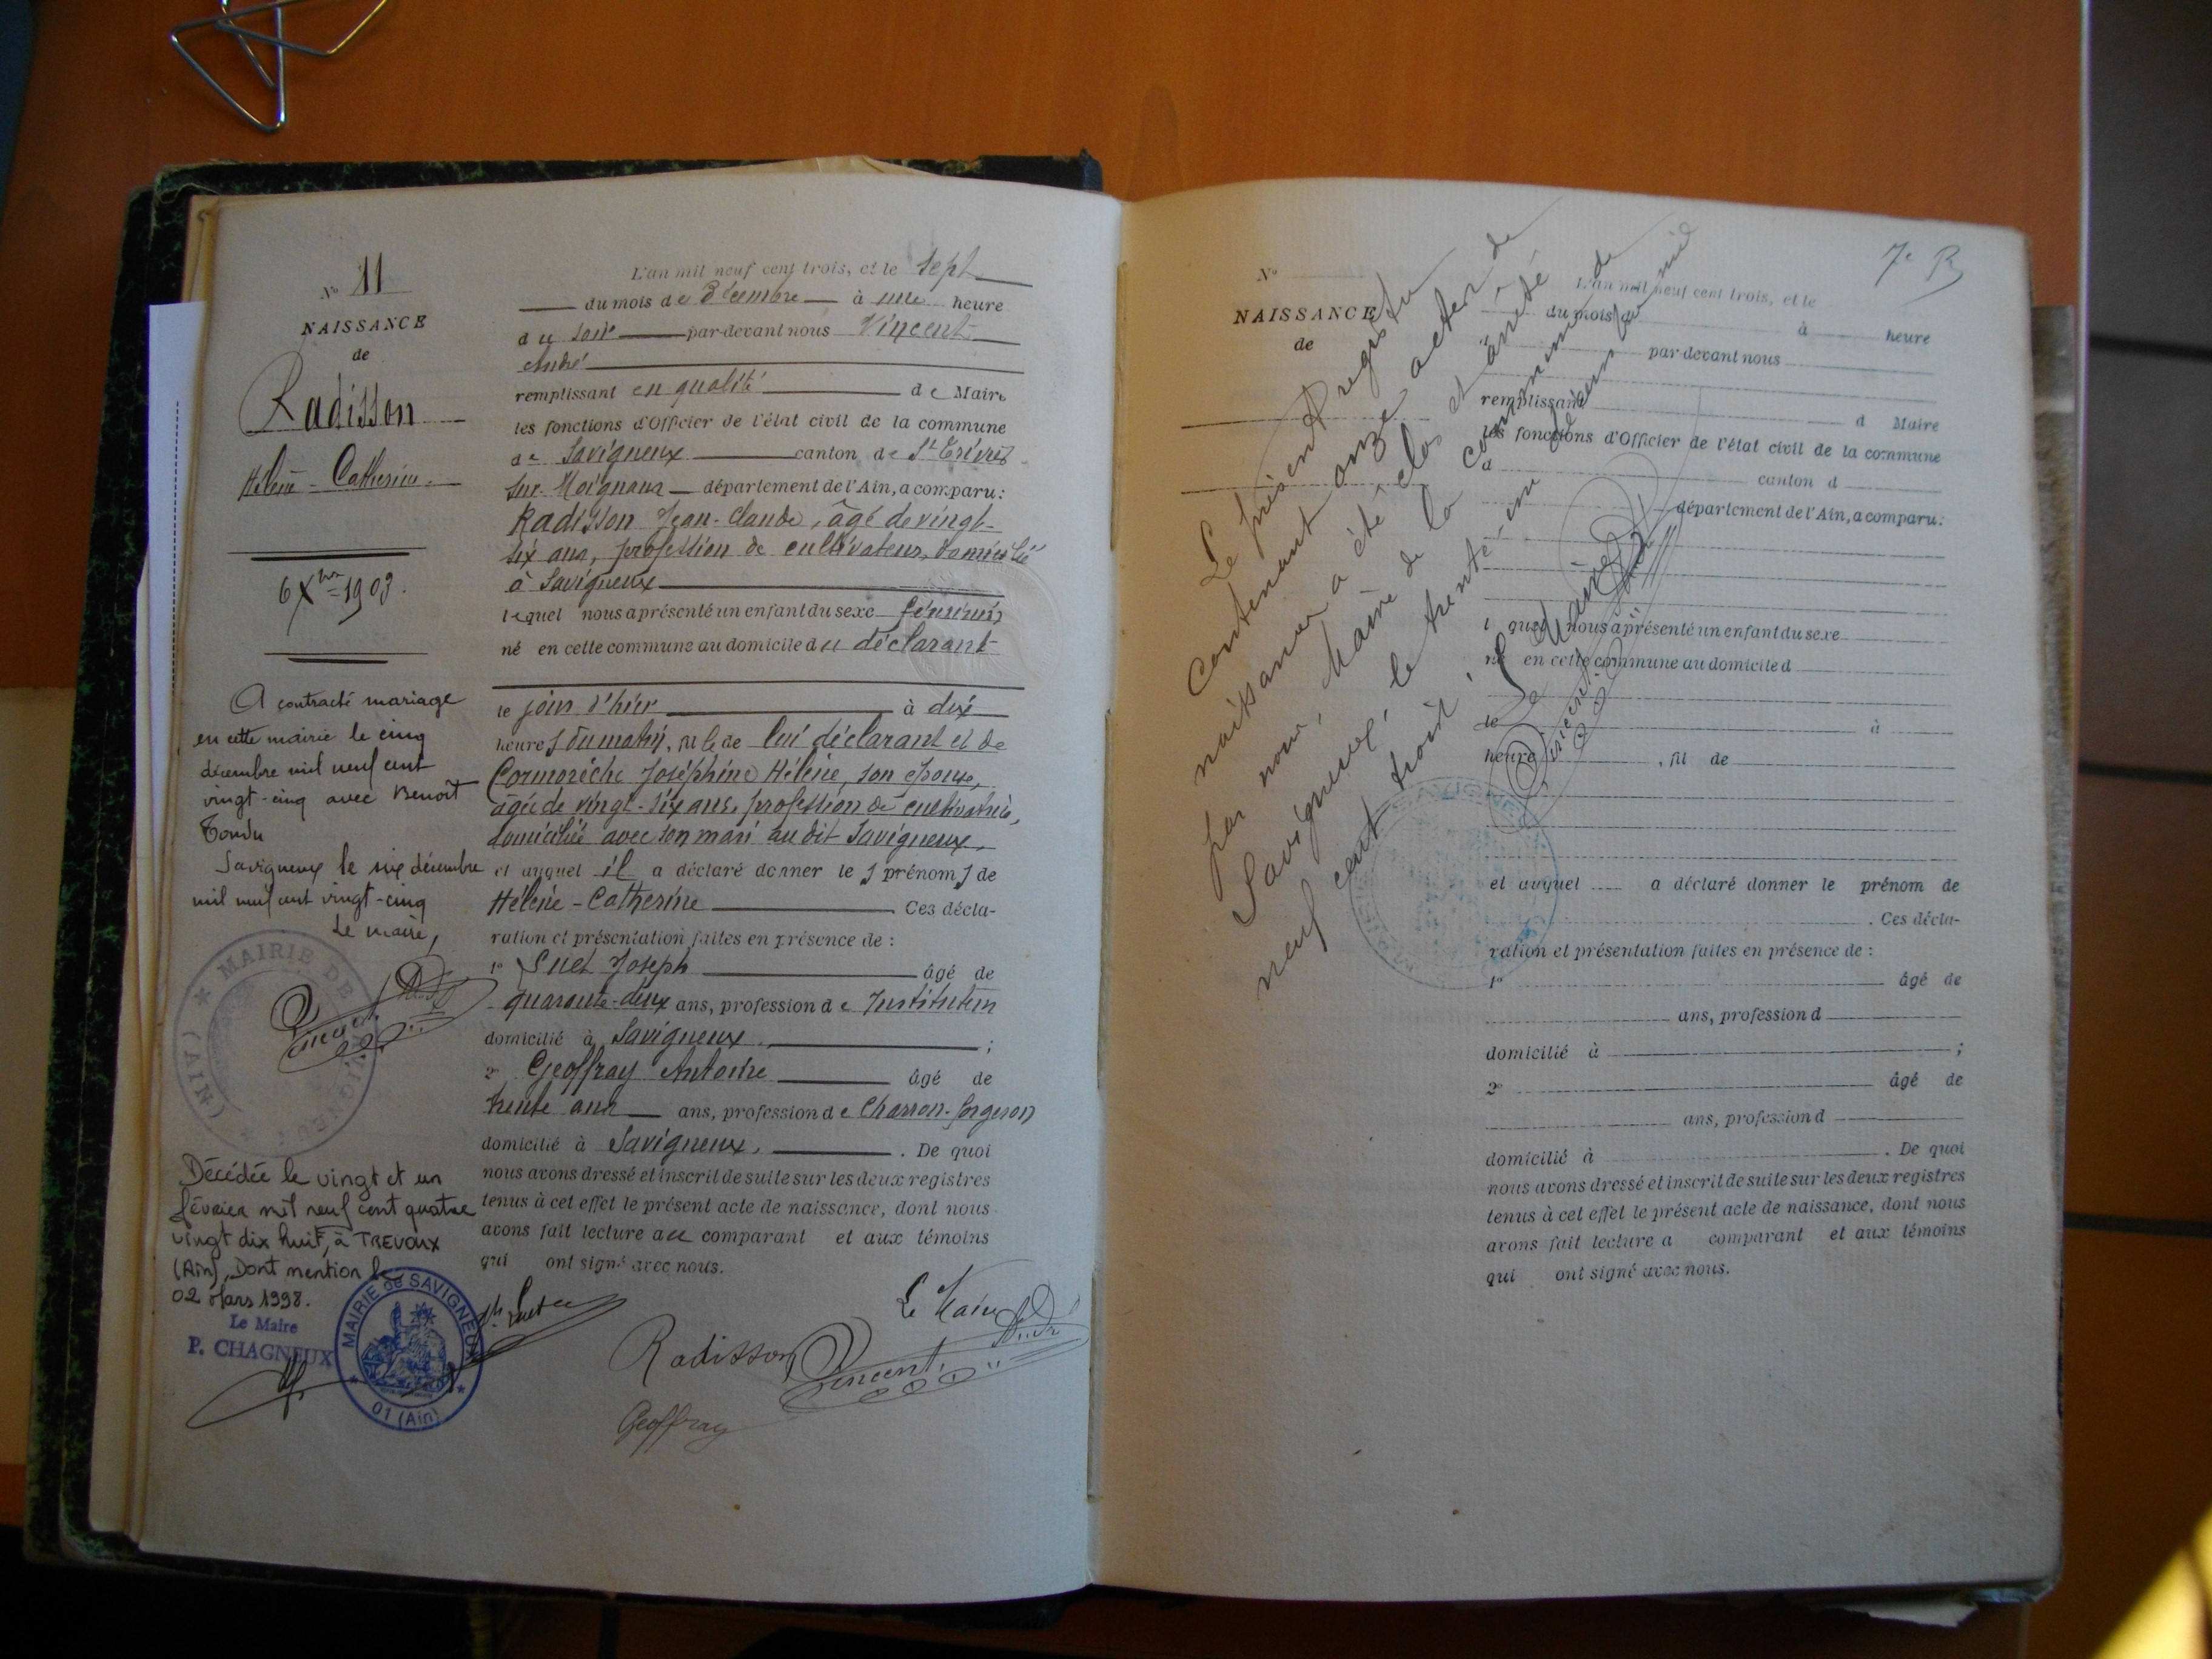 N° 11
NAISSANCE
de
Radisson
Hélène - Catherine.
6 Xbre 1903.
A contracté mariage
en cette mairie le cinq
décembre mil neuf cent
vingt-cinq avec Benoît
Tondu
Savigneux le six décembre
mil neuf cent vingt-cinq
Le maire,
MAIRIE DE SAVIGNEUX (AIN)
Décédée le vingt et un
février mil neuf cent quatre
vingt dix huit, à TREVOUX
(Ain), Dont mention le
02 Mars 1998.
Le Maire
P. CHAGNEUX
MAIRIE de SAVIGNEUX
01 (Ain)
L'an mil neuf cent trois, et le sept
du mois de Décembre à une heure
du soir par-devant nous Vincent
André
remplissant en qualité de Maire
les fonctions d'Officier de l'état civil de la commune
de Savigneux canton de St Trivier
sur Moignans département de l'Ain, a comparu:
Radisson Jean-Claude, âgé de vingt-
six ans, profession de cultivateur, domicilié
à Savigneux
lequel nous a présenté un enfant du sexe féminin
né en cette commune au domicile du déclarant
le jour d'hier à dix
heures du matin, fille de lui déclarant et de
Cormorèche Joséphine Hélène, son épouse,
âgée de vingt-six ans, profession de cultivatrice,
domiciliée avec son mari au dit Savigneux,
et auquel il a déclaré donner les prénoms de
Hélène - Catherine Ces décla-
ration et présentation faites en présence de :
1° Suet Joseph âgé de
quarante-deux ans, profession de Instituteur
domicilié à Savigneux ;
2° Geoffray Antoine âgé de
trente ans ans, profession de Charron-forgeron
domicilié à Savigneux. . De quoi
nous avons dressé et inscrit de suite sur les deux registres
tenus à cet effet le présent acte de naissance, dont nous
avons fait lecture au comparant et aux témoins
qui ont signé avec nous.
Le Maire
Radisson
Vincent
Geoffray
7e
N°
NAISSANCE
de
Le présent registre
contenant onze actes de
naissances a été clos et arrêté
par nous, Maire de la commune de
Savigneux, le trente-un décembre mil
neuf cent trois.
Le Maire
L'an mil neuf cent trois, et le
du mois de à heure
par-devant nous
remplissant d Maire
les fonctions d'Officier de l'état civil de la commune
d canton d
département de l'Ain, a comparu:
l quel nous a présenté un enfant du sexe
né en cette commune au domicile d
le à
heure , fil de
et auquel a déclaré donner le prénom de
. Ces décla-
ration et présentation faites en présence de :
1° âgé de
ans, profession d
domicilié à ;
2° âgé de
ans, profession d
domicilié à . De quoi
nous avons dressé et inscrit de suite sur les deux registres
tenus à cet effet le présent acte de naissance, dont nous
avons fait lecture a comparant et aux témoins
qui ont signé avec nous.